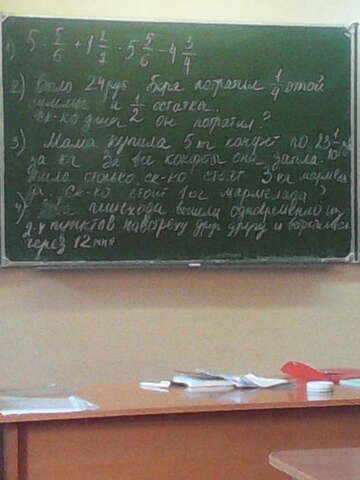 1) 5 - 5/6 + 1 2/7 · 5 5/6 - 4 3/4
2) Было 24 руб Боря потратил 1/4 этой
суммы и 1/2 остатка.
ск-ко денег он потратил?
3) Мама купила 5 кг конфет по 23
за кг За все конфеты она запла-
тила столько, ск-ко стоят 3 кг мармела
ск-ко стоит 1 кг мармелада?
4) Два пешехода вышли одновременно из
2-х пунктов навстречу друг другу и встретились
через 12 мин